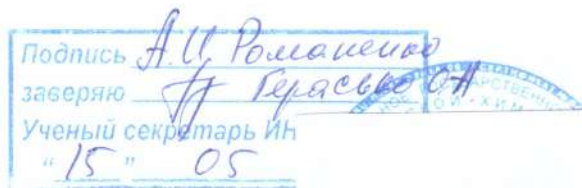 Подпись А.И Романенко
заверяю Герасько ОА
Ученый секретарь ИН
"15" 05